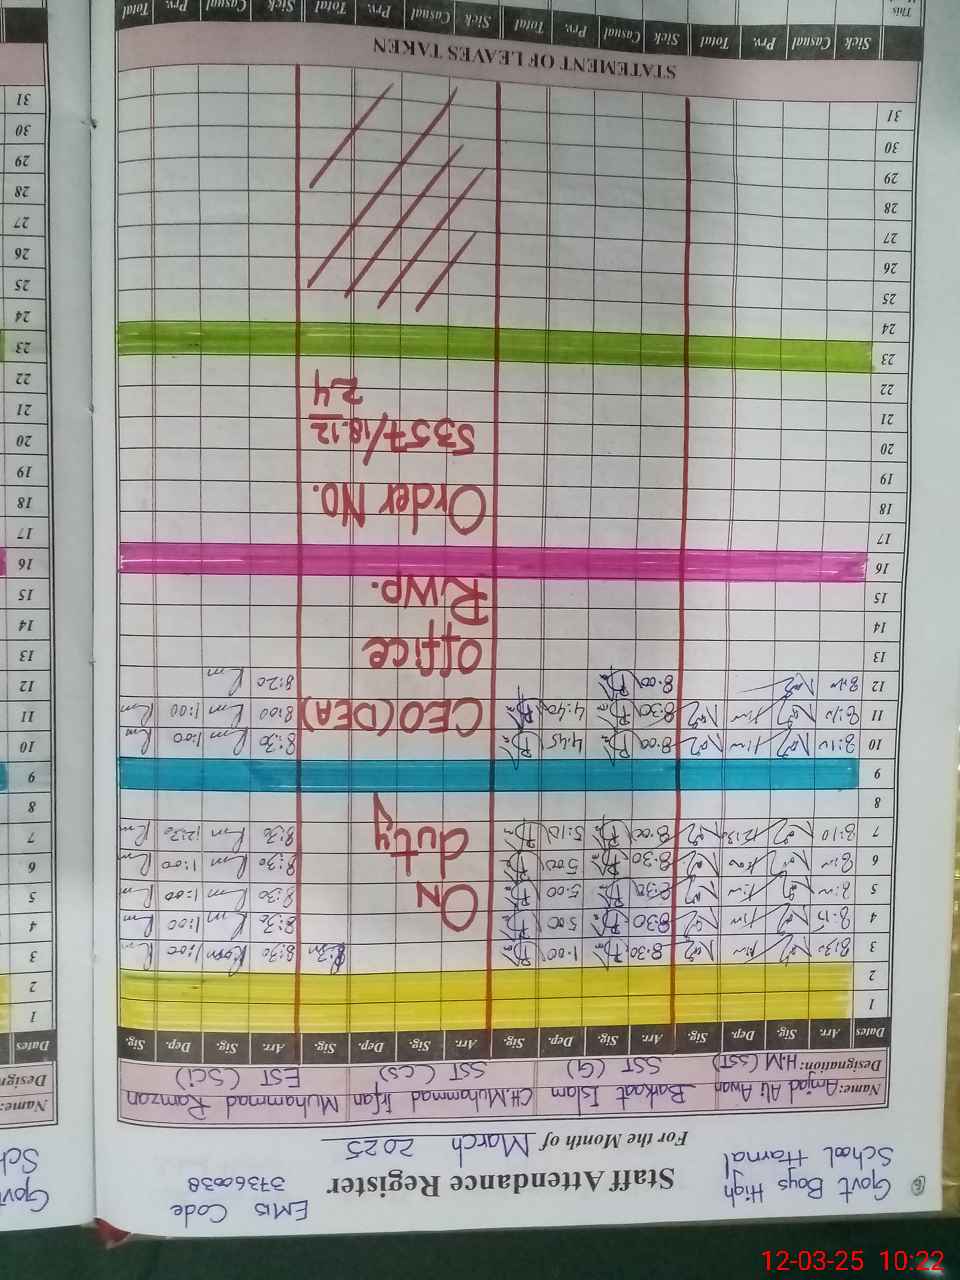 Govt Boys High
School Harnal
Staff Attendance Register
EMIS Code
37360038
For the Month of March 2025
Name: Amjad Ali Awan Barkaat Islam CH. Muhammad Irfan Muhammad Ramzan
Designation: H.M (SST) SST (G) SST (CS) EST (Sci)
Dates Arr. Sig. Dep. Sig. Arr. Sig. Dep. Sig. Arr. Sig. Dep. Sig. Arr. Sig. Dep. Sig.
1
2
3 8:30 8:30 1:00 8:30 1:00
4 8:15 8:30 5:00 8:30 1:00
5 8:30 5:00 8:30 1:00
6 8:30 5:00 8:30 1:00
7 8:10 12:30 8:00 5:10 8:30 12:30
8
9
10 8:10 8:00 4:45 8:30 1:00
11 8:10 8:30 4:40 8:00 1:00
12 8:00 8:20
13
14
15
16
17
18
19
20
21
22
23
24
25
26
27
28
29
30
31
ON
duty
CEO (DEA)
office
RWP.
Order No.
5357/18.12
24
STATEMENT OF LEAVES TAKEN
Sick Casual Prv. Total Sick Casual Prv. Total Sick Casual Prv. Total Sick Casual Prv. Total
This
Govt
Sch
Name:
Design
Dates
1
2
3
4
5
6
7
8
9
10
11
12
13
14
15
16
17
18
19
20
21
22
23
24
25
26
27
28
29
30
31
12-03-25 10:22